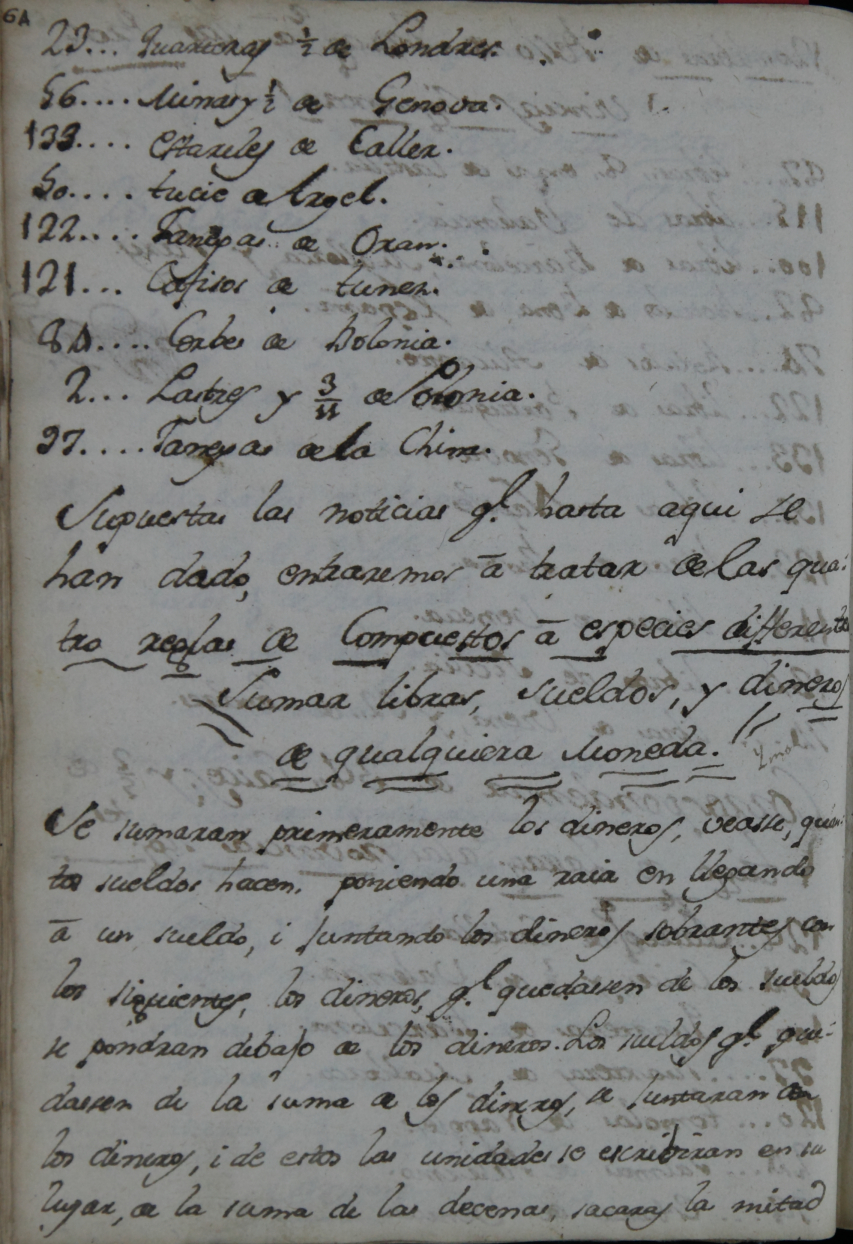 6A
23... Quarteras 1/2 de Londres.
56.... Minas y 1/2 de Genova.
133.... Estareles de Caller.
50.... tucie de Argel.
122.... Fanegas de Oran.
121... Cafisos de tunez.
80.... Corbe de Bolonia.
2... Lastres y 3/11 de Polonia.
97.... Fanegas de la China.
Supuestas las noticias q.l hasta aqui se
hân dado, entraremos â tratar de las qua-
tro reglas de Compuestos â especies differentes
Sumar libras, sueldos, y dineros
de qualquiera Moneda.
Se sumaran primeramente los dineros, veasse, quan-
tos sueldos hacen, poniendo una raia en llegando
â un sueldo, i juntando los dineros sobrantes con
los siguientes, los dineros, q.l quedassen de los sueldos
se pondran debajo de los dineros. Los sueldos q.l que-
dassen de la suma de los dineros, se juntaran con
los dineros, i de estos las unidades se escribiran en su
lugar, de la suma de las decenas, sacaras la mitad